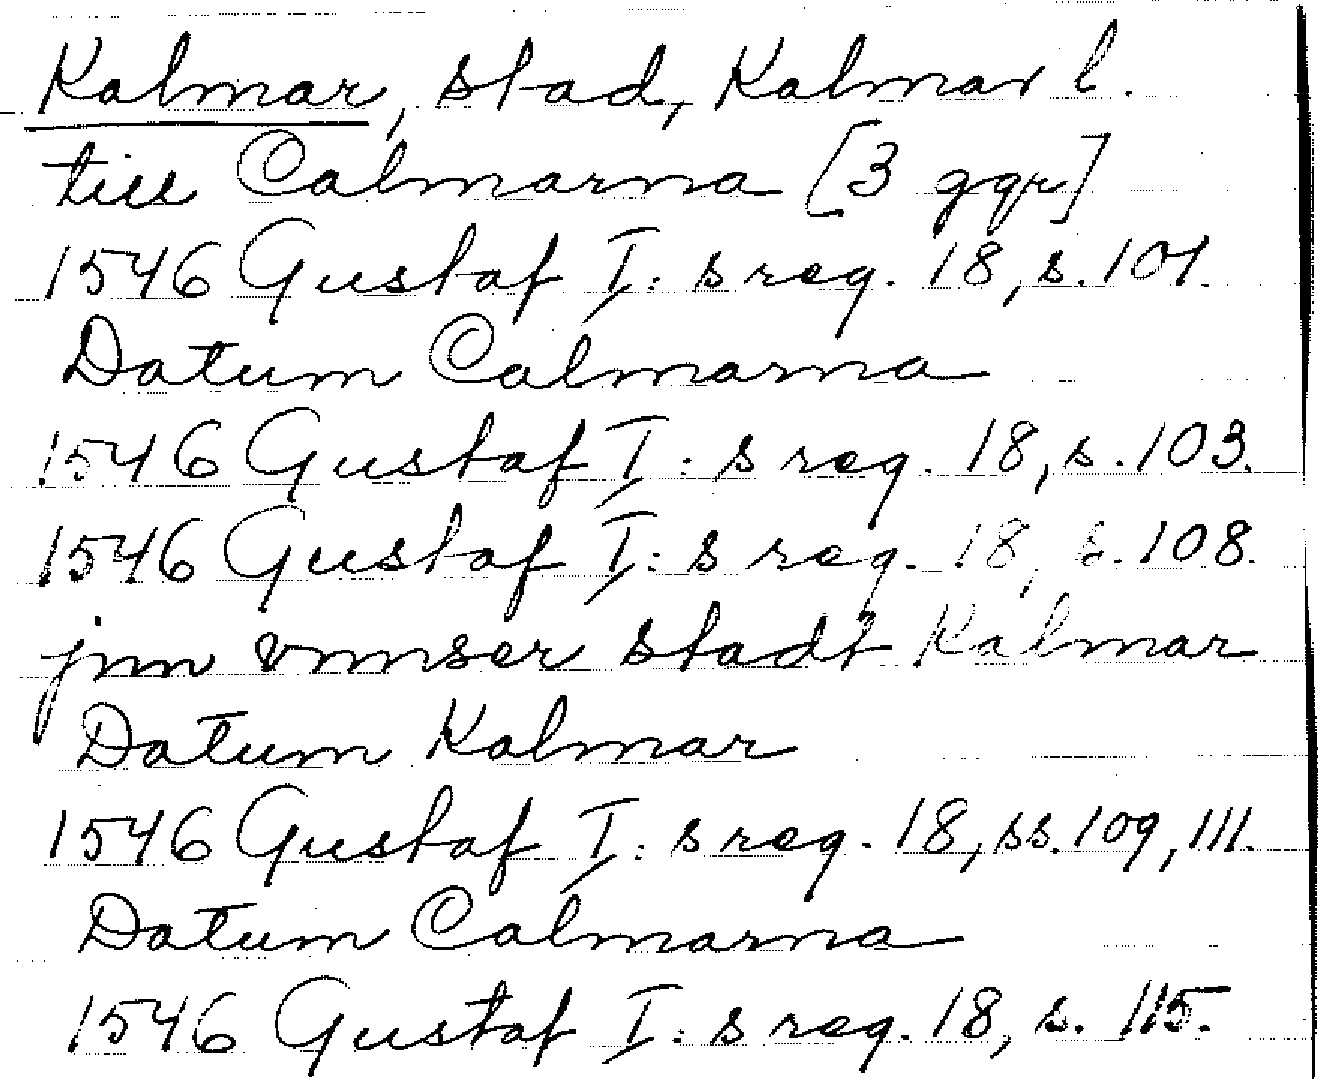 Kalmar, stad, Kalmar l.
till Calmarna [3 ggr]
1546 Gustaf I:s reg. 18, s. 101.
Datum Calmarna
1546 Gustaf I:s reg. 18, s. 103.
1546 Gustaf I:s reg. 18, s. 108.
jnn vnnser stadt Kalmar
Datum Kalmar
1546 Gustaf I:s reg. 18, ss. 109, 111.
Datum Calmarna
1546 Gustaf I:s reg. 18, s. 115.